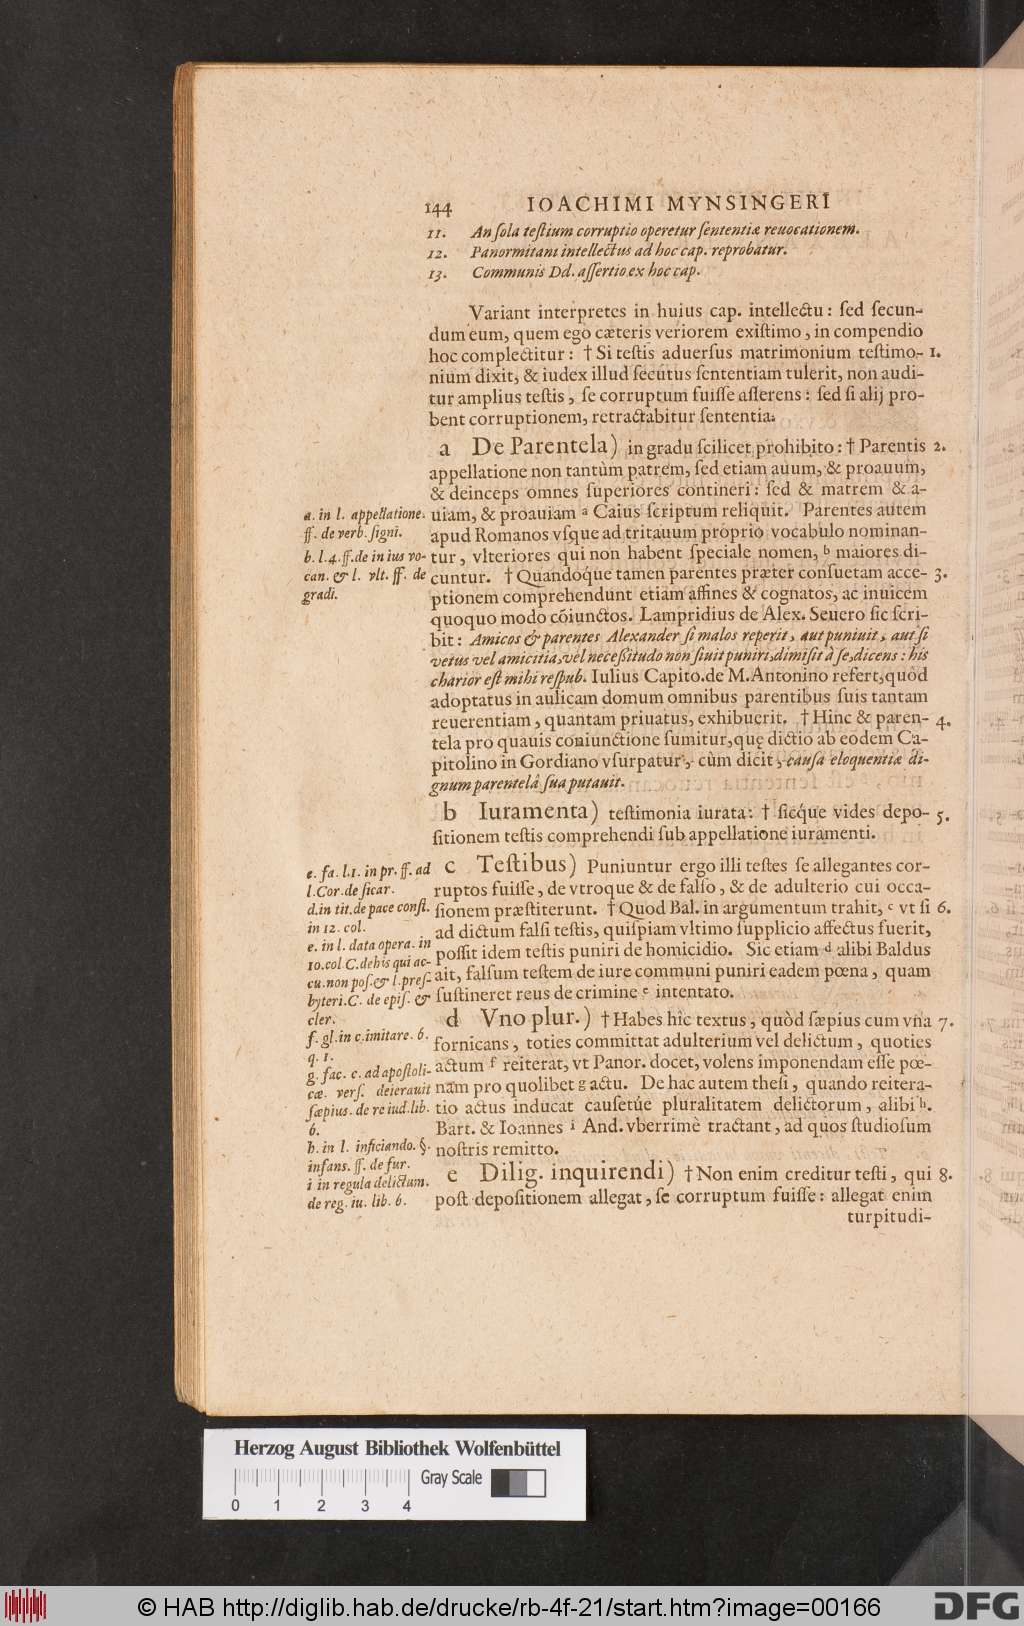 144 IOACHIMI MYNSINGERI
11. An ſola teſtium corruptio operetur ſententiæ reuocationem.
12. Panormitani intellectus ad hoc cap. reprobatur.
13. Communis Dd. aſſertio ex hoc cap.
Variant interpretes in huius cap. intellectu: ſed ſecun-
dum eum, quem ego cæteris veriorem exiſtimo, in compendio
hoc complectitur: † Si teſtis aduerſus matrimonium teſtimo- 1.
nium dixit, & iudex illud ſecutus ſententiam tulerit, non audi-
tur amplius teſtis, ſe corruptum fuiſſe aſſerens: ſed ſi alij pro-
bent corruptionem, retractabitur ſententia.
a De Parentela) in gradu ſcilicet prohibito: † Parentis 2.
appellatione non tantùm patrem, ſed etiam auum, & proauum,
& deinceps omnes ſuperiores contineri: ſed & matrem & a-
uiam, & proauiam a Caius ſcriptum reliquit. Parentes autem
apud Romanos vſque ad tritauum proprio vocabulo nominan-
tur, vlteriores qui non habent ſpeciale nomen, b maiores di-
cuntur. † Quandoq́ue tamen parentes præter conſuetam acce- 3.
ptionem comprehendunt etiam affines & cognatos, ac inuicem
quoquo modo cõiunctos. Lampridius de Alex. Seuero ſic ſcri-
bit: Amicos & parentes Alexander ſi malos reperit, aut puniuit, aut ſi
vetus vel amicitia, vel neceßitudo non ſiuit puniri, dimiſit à ſe, dicens: his
charior eſt mihi reſpub. Iulius Capito. de M. Antonino refert, quòd
adoptatus in aulicam domum omnibus parentibus ſuis tantam
reuerentiam, quantam priuatus, exhibuerit. † Hinc & paren- 4.
tela pro quauis coniunctione ſumitur, quę dictio ab eodem Ca-
pitolino in Gordiano vſurpatur, cùm dicit, cauſa eloquentiæ di-
gnum parentelâ ſua putauit.
b Iuramenta) teſtimonia iurata: † ſicq́ue vides depo- 5.
ſitionem teſtis comprehendi ſub appellatione iuramenti.
c Teſtibus) Puniuntur ergo illi teſtes ſe allegantes cor-
ruptos fuiſſe, de vtroque & de falſo, & de adulterio cui occa-
ſionem præſtiterunt. † Quod Bal. in argumentum trahit, c vt ſi 6.
ad dictum falſi teſtis, quiſpiam vltimo ſupplicio affectus fuerit,
poſſit idem teſtis puniri de homicidio. Sic etiam d alibi Baldus
ait, falſum teſtem de iure communi puniri eadem pœna, quam
ſuſtineret reus de crimine e intentato.
d Vno plur.) † Habes hîc textus, quòd ſæpius cum vna 7.
fornicans, toties committat adulterium vel delictum, quoties
actum f reiterat, vt Panor. docet, volens imponendam eſſe pœ-
nam pro quolibet g actu. De hac autem theſi, quando reitera-
tio actus inducat cauſetúe pluralitatem delictorum, alibi h.
Bart. & Ioannes i And. vberrimè tractant, ad quos ſtudioſum
noſtris remitto.
e Dilig. inquirendi) † Non enim creditur teſti, qui 8.
poſt depoſitionem allegat, ſe corruptum fuiſſe: allegat enim
turpitudi-
a. in l. appellatione.
ff. de verb. ſigni.
b. l. 4. ff. de in ius vo-
can. & l. vlt. ff. de
gradi.
c. fa. l. 1. in pr. ff. ad
l. Cor. de ſicar.
d. in tit. de pace conſt.
in 12. col.
e. in l. data opera. in
10. col. C. de his qui ac-
cu. non poſ. & l. preſ-
byteri. C. de epiſ. &
cler.
f. gl. in c. imitare. 6.
q. 1.
g. fac. c. ad apoſtoli-
cæ. verſ. deierauit
ſæpius. de re iud. lib.
6.
h. in l. inficiando. §.
infans. ff. de fur.
i in regula delictum.
de reg. iu. lib. 6.
Herzog August Bibliothek Wolfenbüttel
Gray Scale
0 1 2 3 4
© HAB http://diglib.hab.de/drucke/rb-4f-21/start.htm?image=00166
DFG